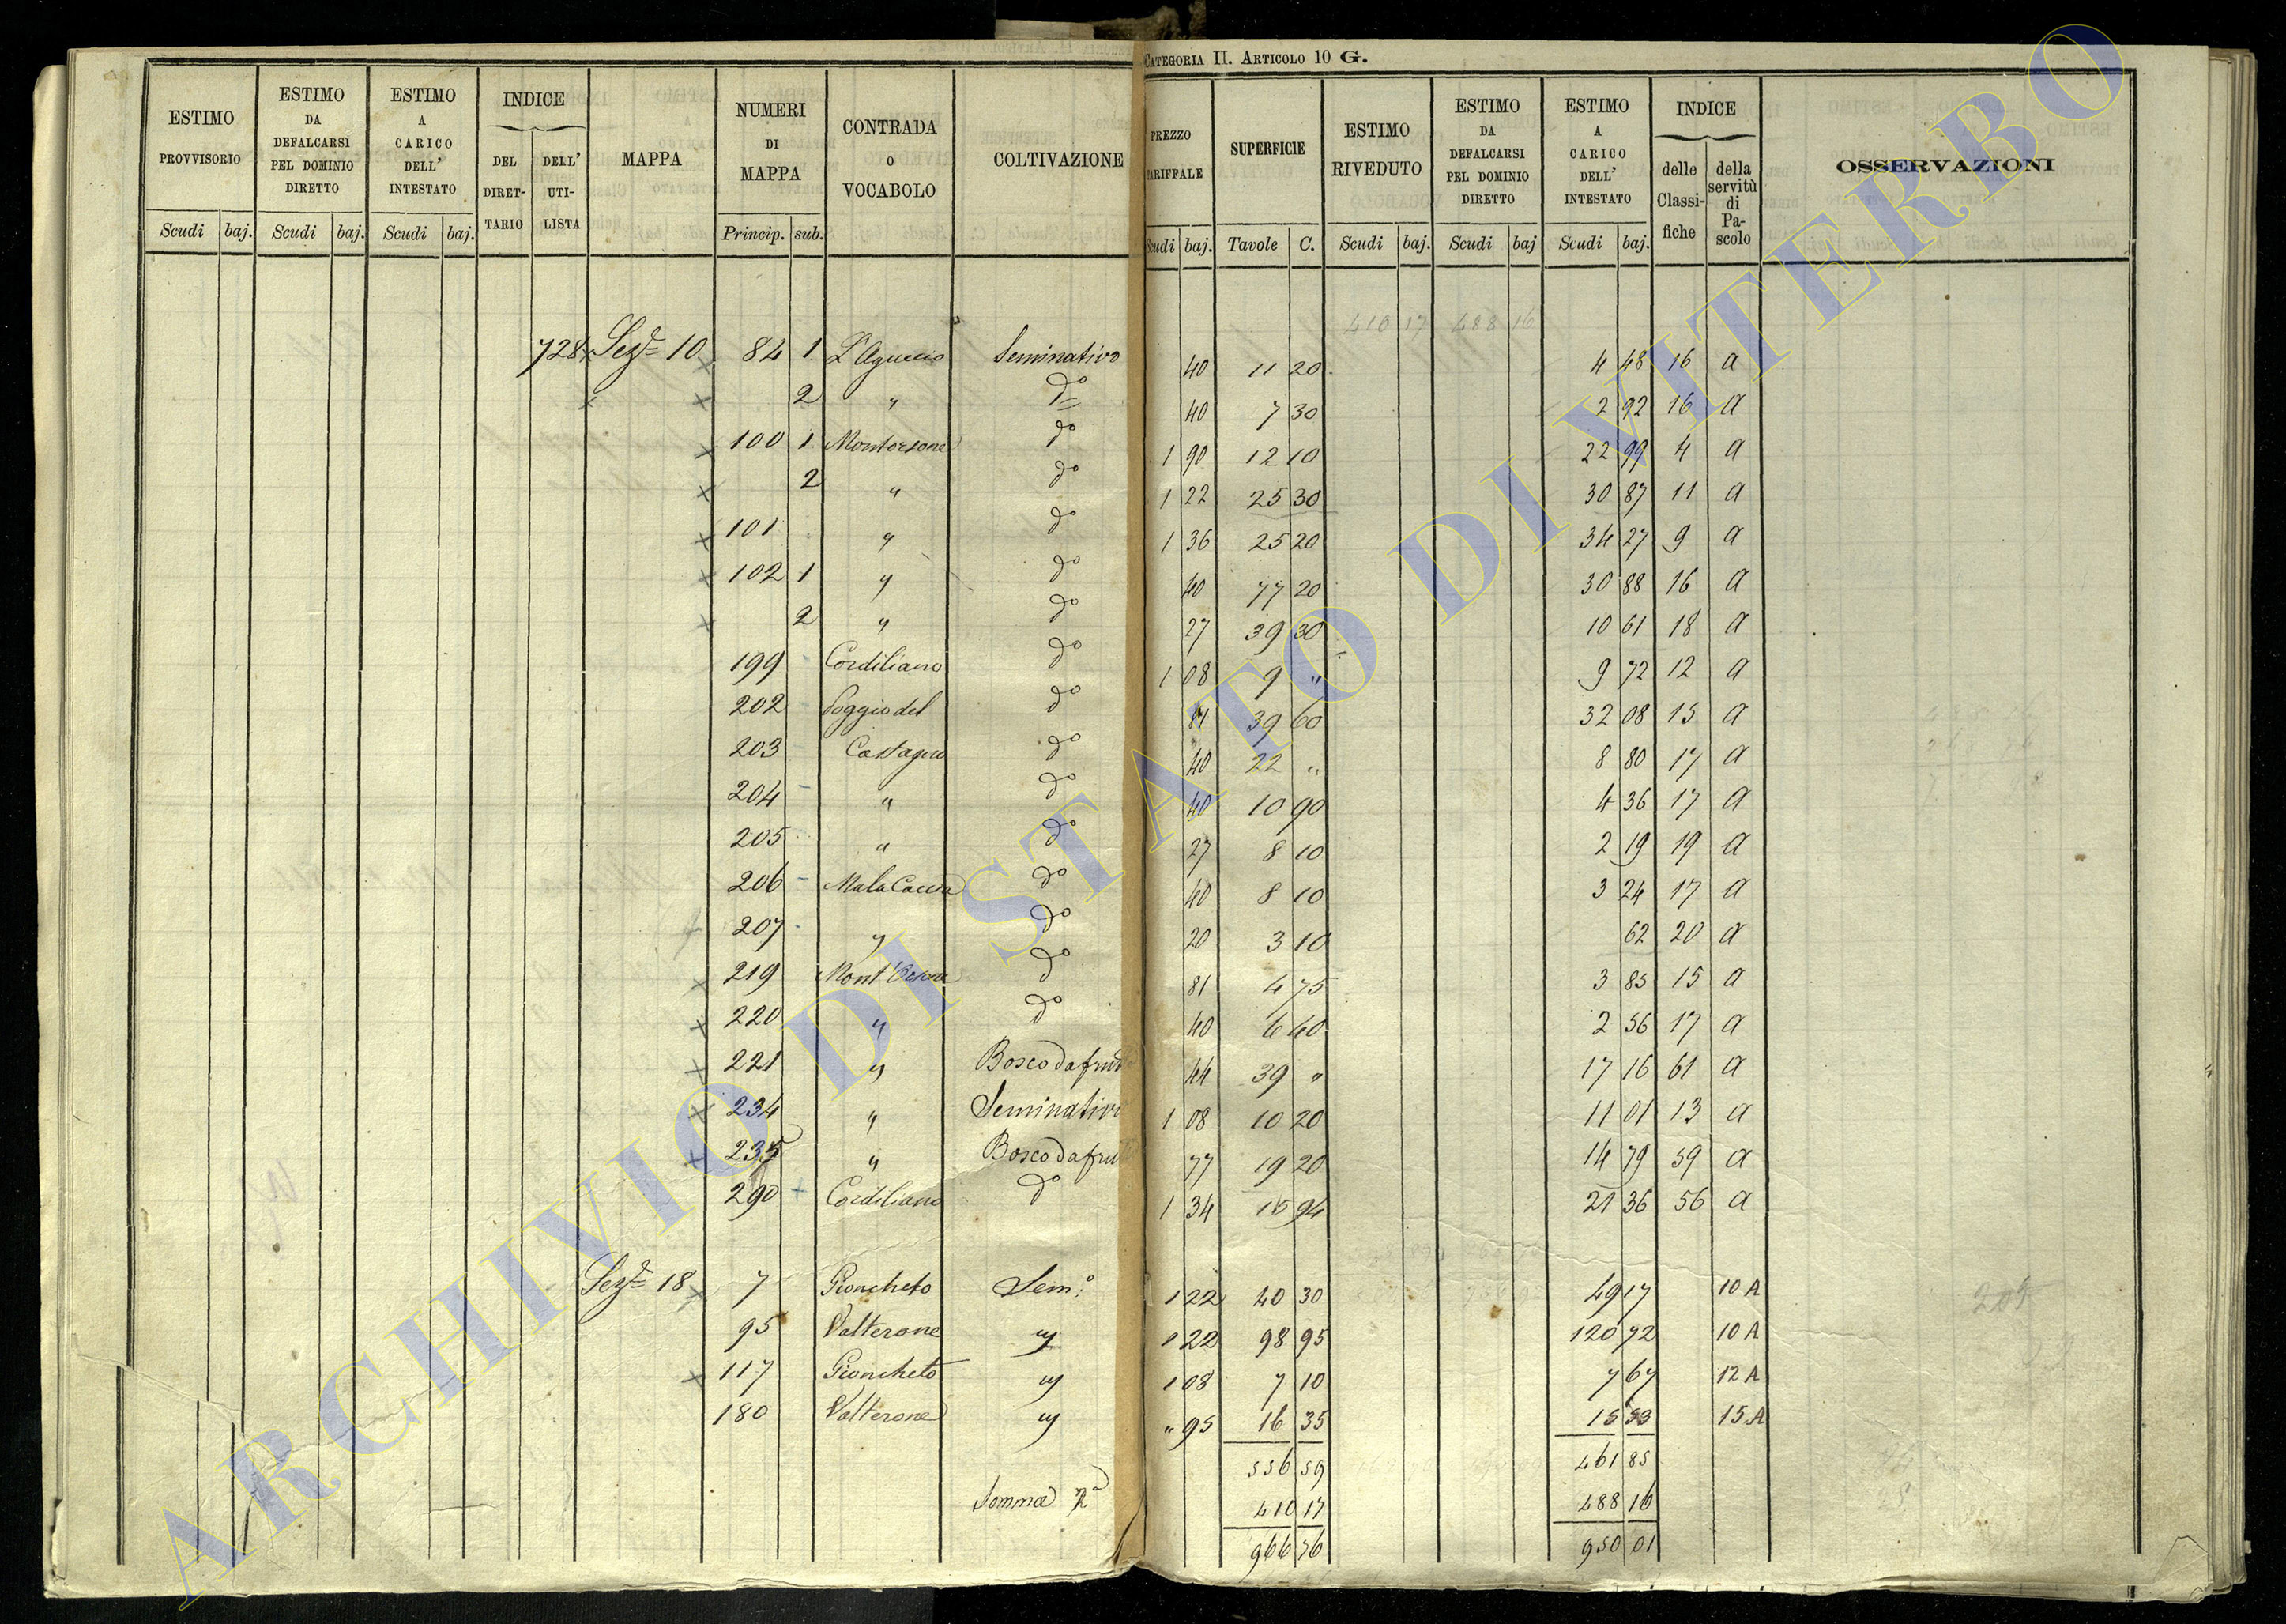 CATEGORIA II. ARTICOLO 10 G.
ESTIMO PROVVISORIO Scudi baj.
ESTIMO DA DEFALCARSI PEL DOMINIO DIRETTO Scudi baj.
ESTIMO A CARICO DELL' INTESTATO Scudi baj.
INDICE DEL DIRETTARIO DELL' UTILISTA
MAPPA
NUMERI DI MAPPA Princip. sub.
CONTRADA O VOCABOLO
COLTIVAZIONE
PREZZO TARIFFALE Scudi baj.
SUPERFICIE Tavole C.
ESTIMO RIVEDUTO Scudi baj.
ESTIMO DA DEFALCARSI PEL DOMINIO DIRETTO Scudi baj
ESTIMO A CARICO DELL' INTESTATO Scudi baj.
INDICE delle Classifiche della servitù di Pascolo
OSSERVAZIONI
410 17 488 16
728 Sezne 10 84 1 Seminativo 40 11 20 4 48 16 a
2 " do 40 7 30 2 92 16 a
100 1 Montorsone do 1 90 12 10 22 99 4 a
2 " do 1 22 25 30 30 87 11 a
101 " do 1 36 25 20 34 27 9 a
102 1 " do 40 77 20 30 88 16 a
2 " do 27 39 30 10 61 18 a
199 Cordiliano do 1 08 9 " 9 72 12 a
202 Poggio del do 81 39 60 32 08 15 a
203 Castagno do 40 22 " 8 80 17 a
204 " do 40 10 90 4 36 17 a
205 " do 27 8 10 2 19 19 a
206 do 40 8 10 3 24 17 a
207 " do 20 3 10 62 20 a
219 do 81 4 75 3 85 15 a
220 " do 40 6 40 2 56 17 a
221 " Bosco da frut 44 39 " 17 16 61 a
234 " Seminativo 1 08 10 20 11 01 13 a
235 " Bosco da frut 77 19 20 14 79 59 a
290 Cordiliano do 1 34 15 94 21 36 56 a
Sezne 18 7 Gioncheto Sem.o 1 22 40 30 49 17 10 A
95 Valterone " 1 22 98 95 120 72 10 A
117 Gioncheto " 1 08 7 10 7 67 12 A
180 Valterone " " 95 16 35 15 53 15 A
556 59 461 85
Somma 410 17 488 16
966 76 950 01
ARCHIVIO DI STATO DI VITERBO